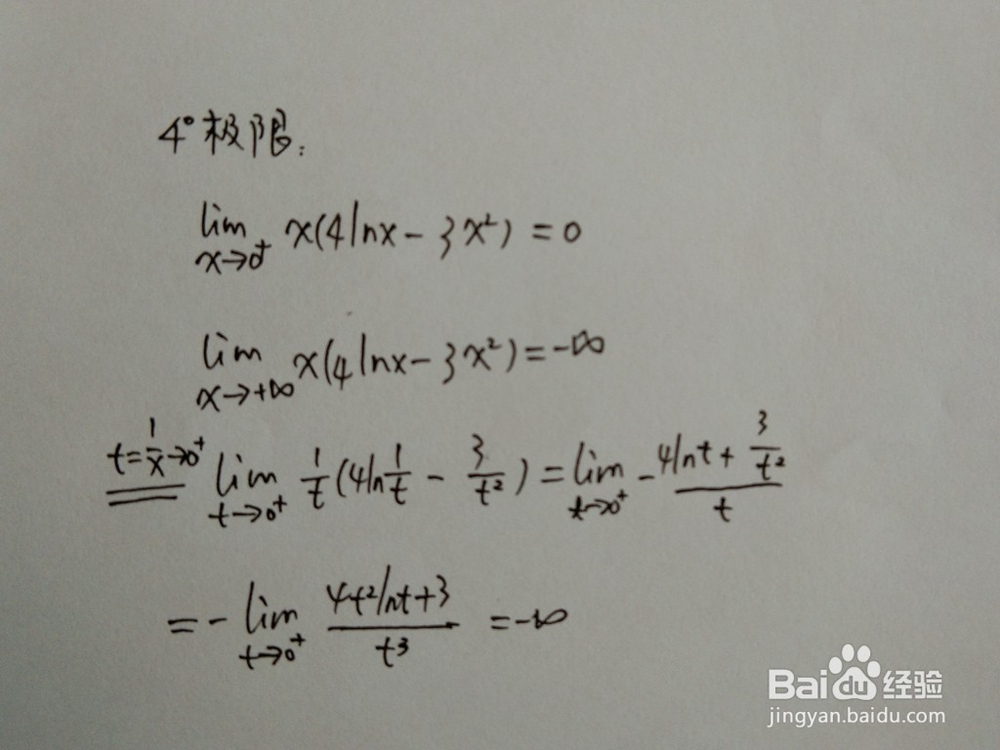 4° 极限:
lim x→0⁺ x(4lnx - 3x²) = 0
lim x→+∞ x(4lnx - 3x²) = -∞
t=1/x→0⁺ lim t→0⁺ 1/t (4ln 1/t - 3/t²) = lim t→0⁺ - (4lnt + 3/t²)/t
= - lim t→0⁺ (4t²lnt+3)/t³ = -∞
Baidu 经验
jingyan.baidu.com